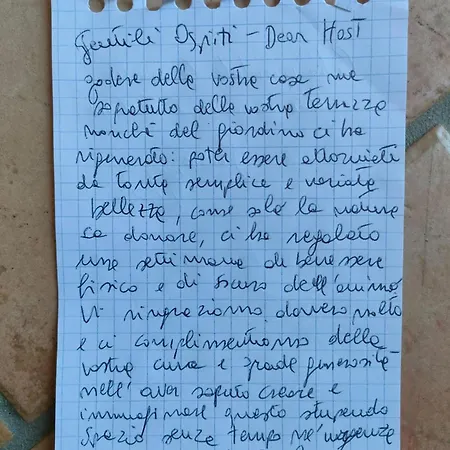 Gentili Ospiti - Dear Host
godere della vostra casa ma
sopratutto della vostra terrazza
nonché del giardino ci ha
rigenerato: poter essere attorniati
da tanta semplice e variata
bellezza, come solo la natura
sa donare, ci ha regalato
una settimana di benessere
fisico e di          dell'animo
Vi ringraziamo davvero molto
e ci complimentiamo della
vostra cura e grande generosità
nell'aver saputo creare e
immaginare questo stupendo
spazio senza tempo né urgenze